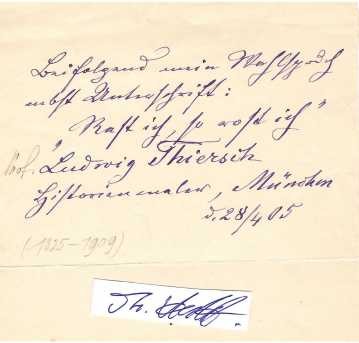 Beifolgend mein Wahlspruch
nebst Unterschrift:
"Rast ich, so rost ich"
Prof. Ludwig Thiersch
Historienmaler, München
d. 28/4 05
(1825-1909)
Th.